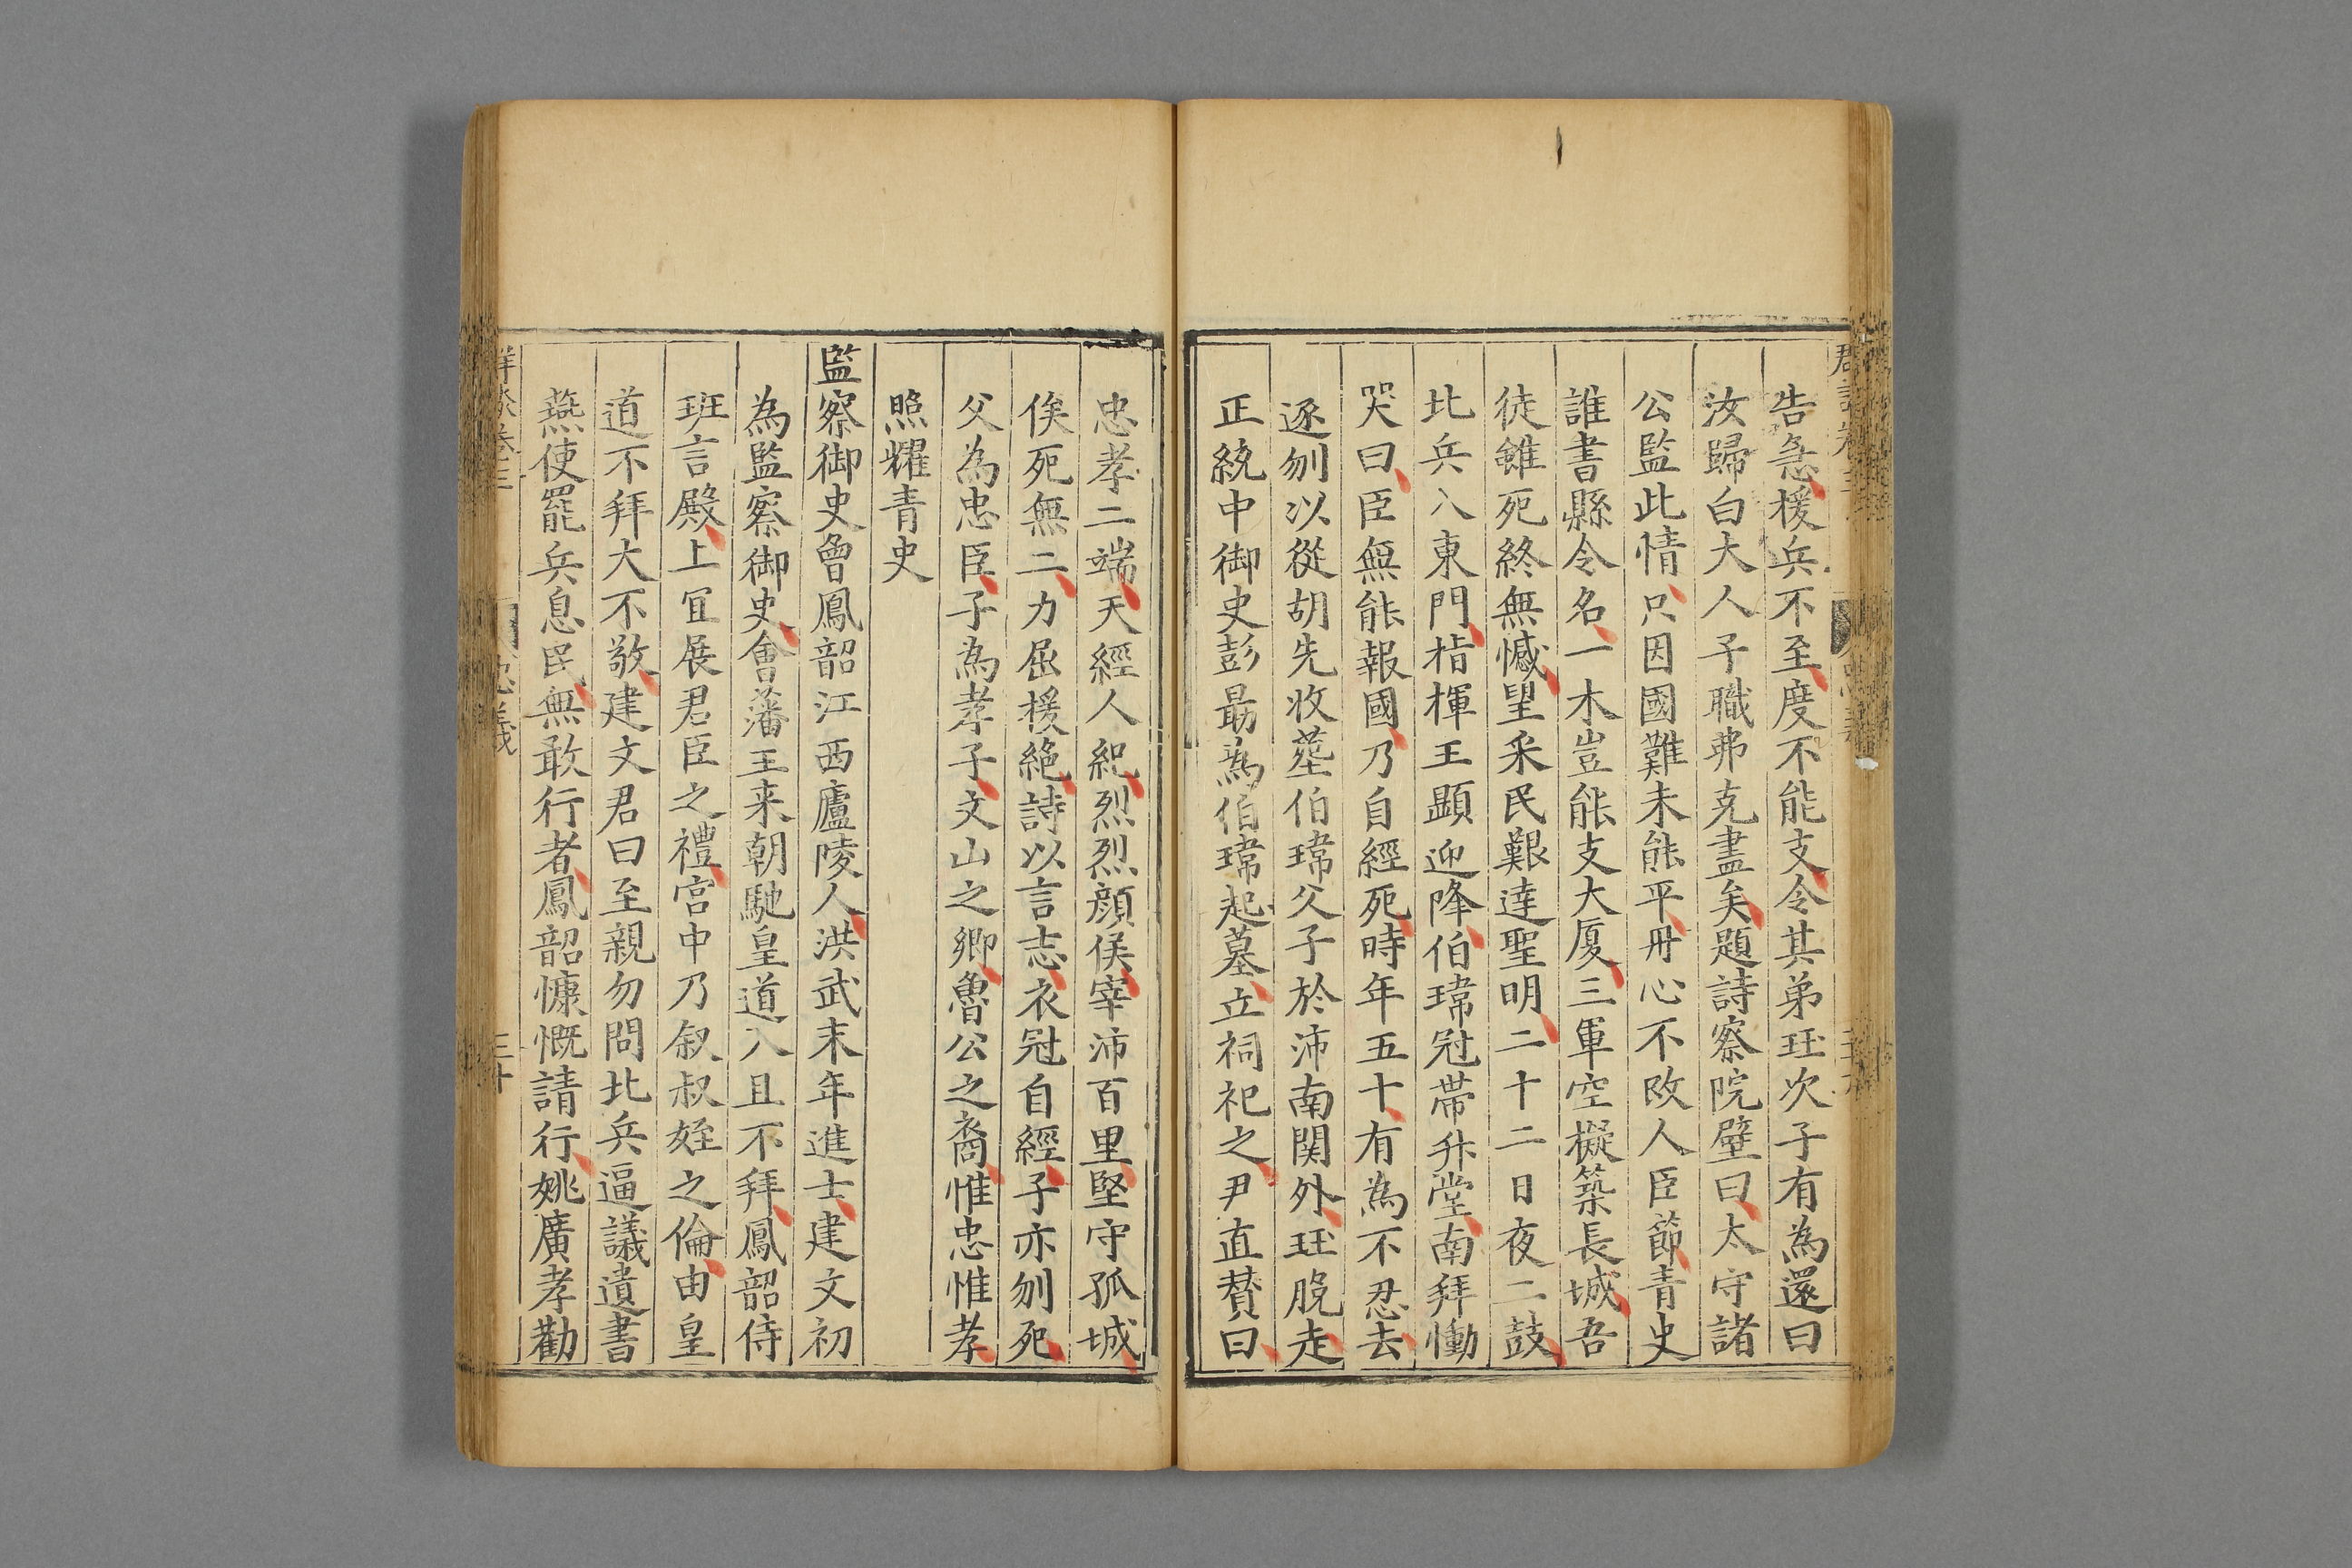 告急援兵不至度不能支令其弟珏次子有為還曰
汝歸白大人子職弗克盡矣題詩察院壁曰太守諸
公監此情只因國難未能平丹心不改人臣節青史
誰書縣令名一木豈能支大厦三軍空擬築長城吾
徒雖死終無憾望采民艱達聖明二十二日夜二鼓
北兵入東門指揮王顕迎降伯瑋冠帶升堂南拜慟
哭曰臣無能報國乃自經死時年五十有為不忍去
逐刎以從胡先收塟伯瑋父子於沛南関外珏脫走
正統中御史彭最為伯瑋起墓立祠祀之尹直賛曰
忠孝二端天經人紀烈烈顔侯宰沛百里堅守孤城
俟死無二力屈援絶詩以言志衣冠自經子亦刎死
父為忠臣子為孝子文山之鄉魯公之裔惟忠惟孝
照耀青史
監察御史曾鳳韶江西廬陵人洪武末年進士建文初
為監察御史會藩王来朝馳皇道入且不拜鳳韶侍
班言殿上冝展君臣之禮宮中乃叙叔姪之倫由皇
道不拜大不敬建文君曰至親勿問北兵逼議遺書
燕使罷兵息民無敢行者鳳韶慷慨請行姚廣孝勸
忠義
三十